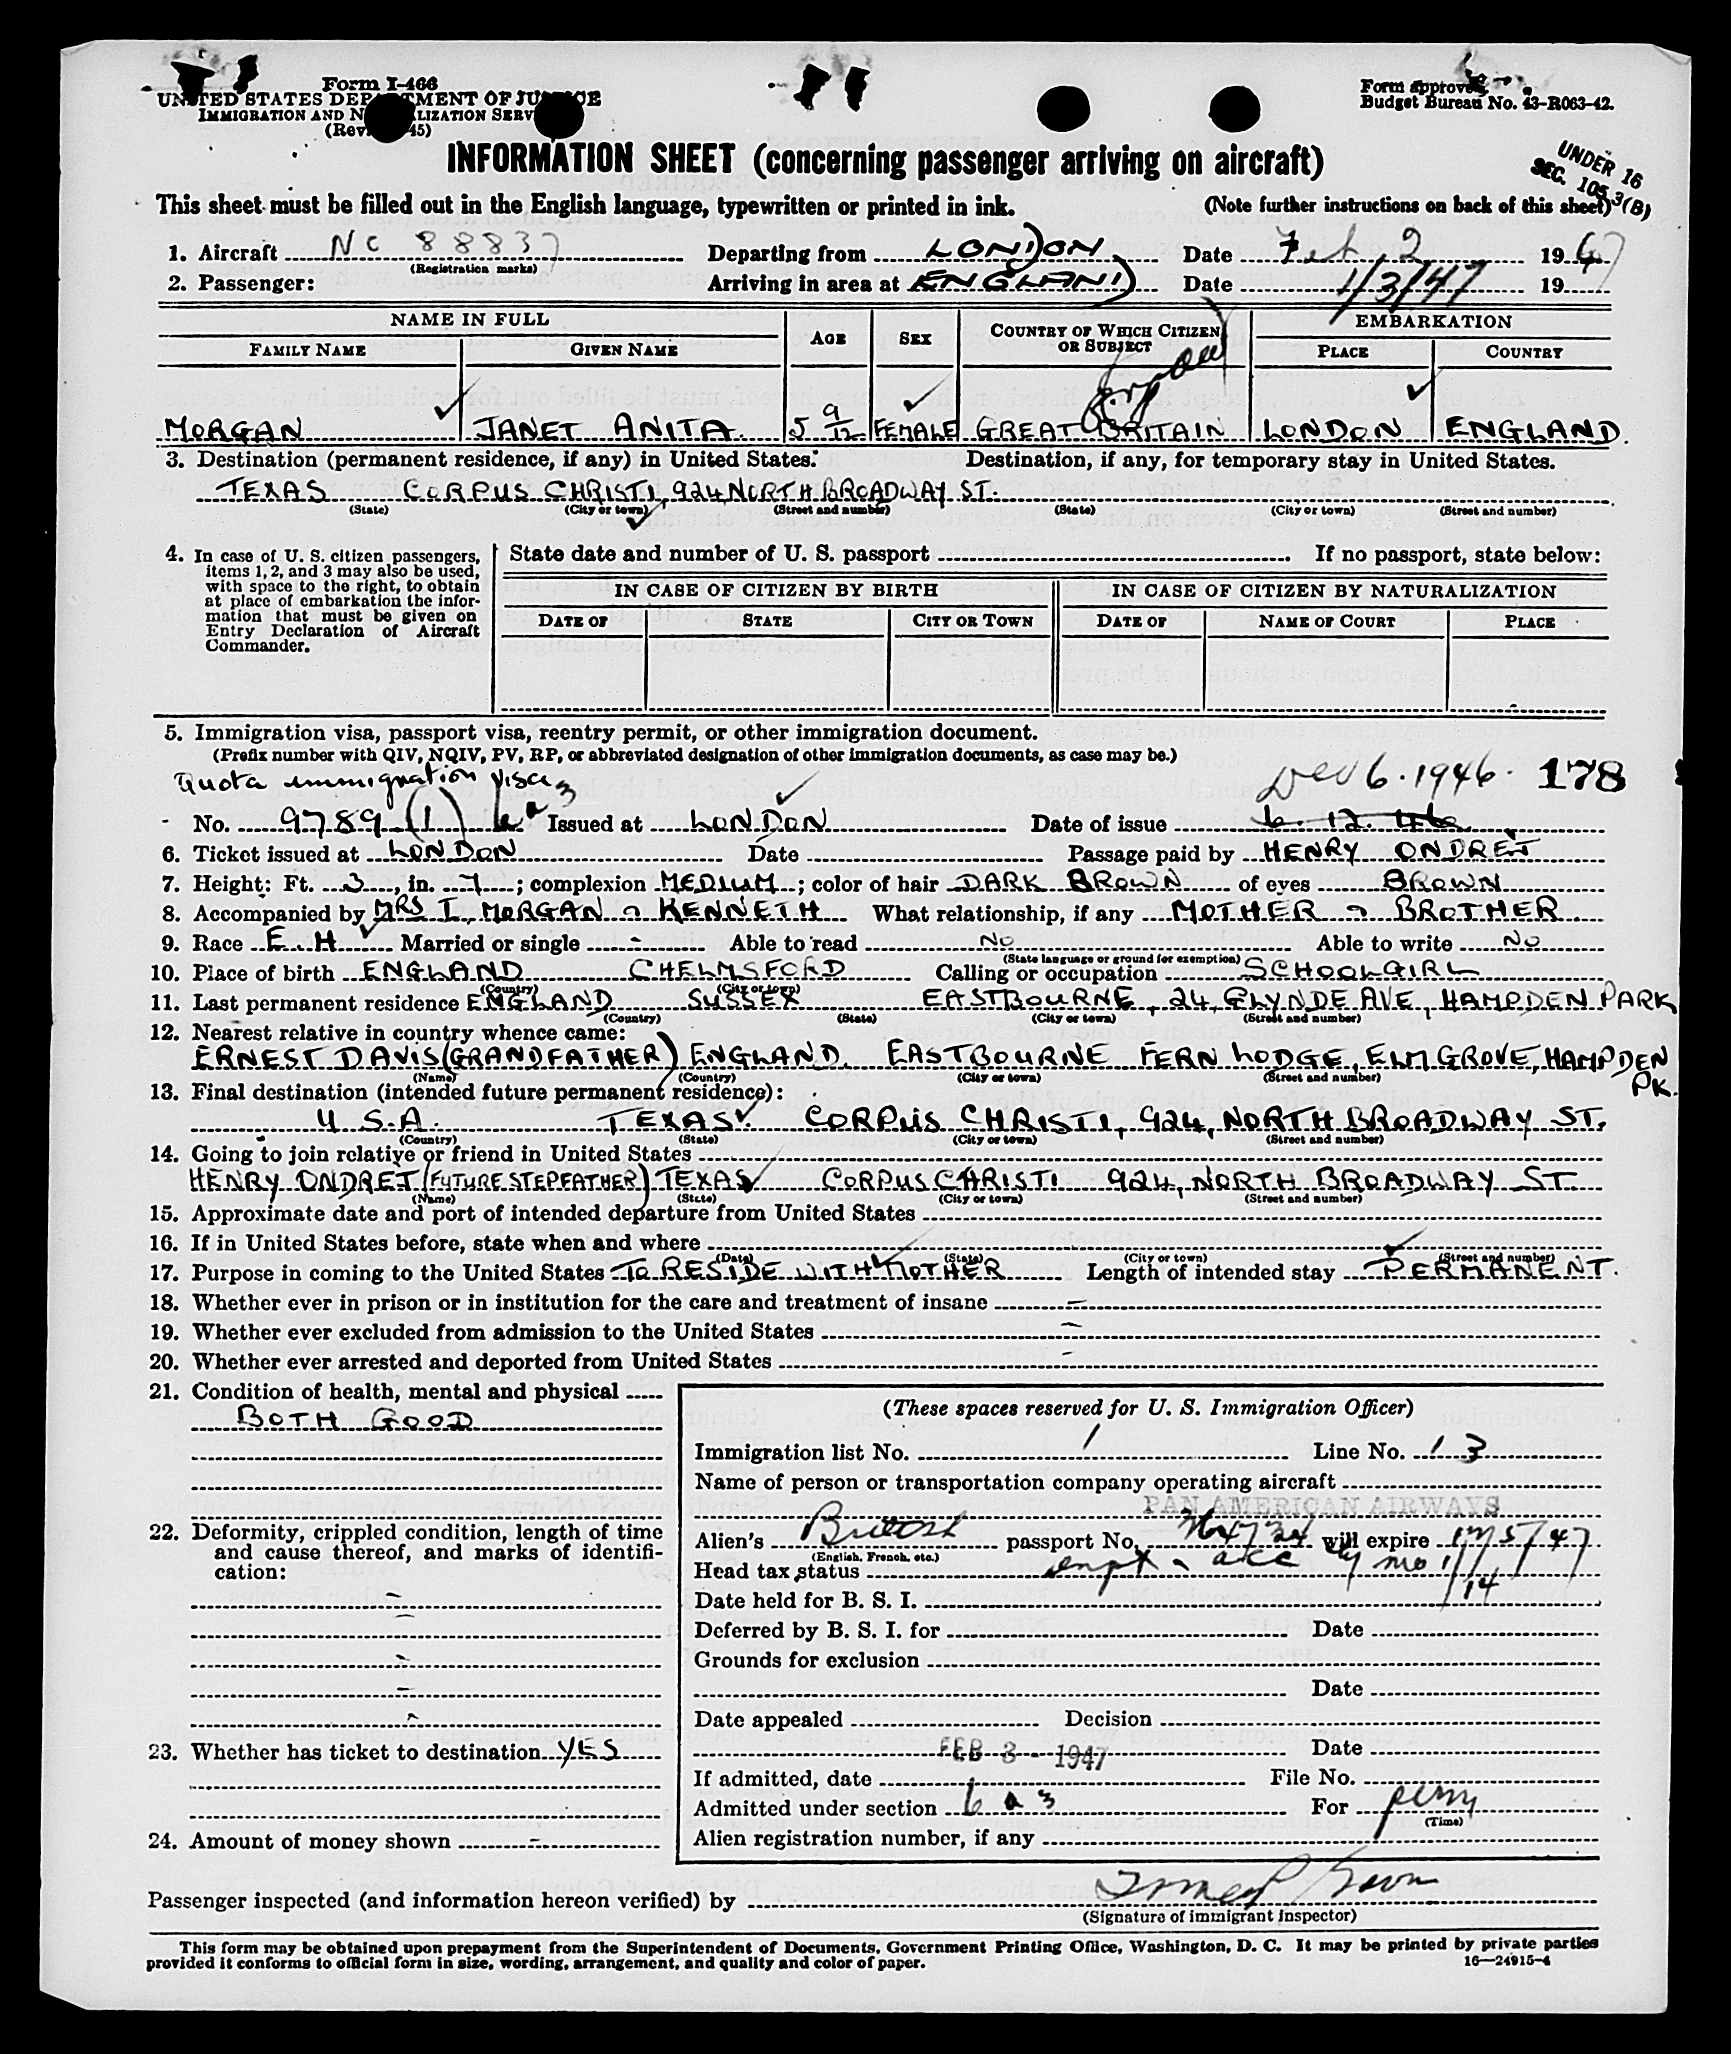 Form I-466
UNITED STATES DEPARTMENT OF JUSTICE
IMMIGRATION AND NATURALIZATION SERVICE
Form approved.
Budget Bureau No. 43-R063-42.
INFORMATION SHEET (concerning passenger arriving on aircraft)
UNDER 16
SEC. 105.3(B)
This sheet must be filled out in the English language, typewritten or printed in ink. (Note further instructions on back of this sheet)
1. Aircraft NC 88837 Departing from LONDON Date Feb 2 1947
(Registration marks)
2. Passenger: Arriving in area at ENGLAND Date 1/3/47 19
NAME IN FULL AGE SEX COUNTRY OF WHICH CITIZEN OR SUBJECT EMBARKATION
FAMILY NAME GIVEN NAME PLACE COUNTRY
MORGAN JANET ANITA. 5 9/12 FEMALE GREAT BRITAIN LONDON ENGLAND.
3. Destination (permanent residence, if any) in United States: Destination, if any, for temporary stay in United States.
TEXAS CORPUS CHRISTI, 924 NORTH BROADWAY ST.
(State) (City or town) (Street and number) (State) (City or town) (Street and number)
4. In case of U. S. citizen passengers, items 1, 2, and 3 may also be used, with space to the right, to obtain at place of embarkation the information that must be given on Entry Declaration of Aircraft Commander.
State date and number of U. S. passport If no passport, state below:
IN CASE OF CITIZEN BY BIRTH IN CASE OF CITIZEN BY NATURALIZATION
DATE OF STATE CITY OR TOWN DATE OF NAME OF COURT PLACE
5. Immigration visa, passport visa, reentry permit, or other immigration document.
(Prefix number with QIV, NQIV, PV, RP, or abbreviated designation of other immigration documents, as case may be.)
Quota immigration visa Dec 6. 1946. 178
No. 9789 (1) 6a3 Issued at LONDON Date of issue 6. 12. 46
6. Ticket issued at LONDON Date Passage paid by HENRY ONDREJ
7. Height: Ft. 3, in. 7; complexion MEDIUM; color of hair DARK BROWN of eyes BROWN
8. Accompanied by MRS I. MORGAN & KENNETH What relationship, if any MOTHER & BROTHER
9. Race E. H Married or single - Able to read NO Able to write NO
(State language or ground for exemption)
10. Place of birth ENGLAND CHELMSFORD Calling or occupation SCHOOLGIRL
(Country) (City or town)
11. Last permanent residence ENGLAND SUSSEX EASTBOURNE, 24, GLYNDE AVE, HAMPDEN PARK
(Country) (State) (City or town) (Street and number)
12. Nearest relative in country whence came:
ERNEST DAVIS (GRANDFATHER) ENGLAND. EASTBOURNE FERN LODGE, ELM GROVE, HAMPDEN PK.
(Name) (Country) (City or town) (Street and number)
13. Final destination (intended future permanent residence):
U.S.A. TEXAS. CORPUS CHRISTI, 924, NORTH BROADWAY ST.
(Country) (State) (City or town) (Street and number)
14. Going to join relative or friend in United States
HENRY ONDREJ (FUTURE STEPFATHER) TEXAS CORPUS CHRISTI 924, NORTH BROADWAY ST
(Name) (State) (City or town) (Street and number)
15. Approximate date and port of intended departure from United States
16. If in United States before, state when and where
(Date) (State) (City or town) (Street and number)
17. Purpose in coming to the United States TO RESIDE WITH MOTHER Length of intended stay PERMANENT.
18. Whether ever in prison or in institution for the care and treatment of insane -
19. Whether ever excluded from admission to the United States -
20. Whether ever arrested and deported from United States -
21. Condition of health, mental and physical
BOTH GOOD
22. Deformity, crippled condition, length of time and cause thereof, and marks of identification:
-
-
-
-
-
23. Whether has ticket to destination YES
24. Amount of money shown -
(These spaces reserved for U. S. Immigration Officer)
Immigration list No. 1 Line No. 13
Name of person or transportation company operating aircraft
PAN AMERICAN AIRWAYS
Alien's British passport No. will expire 12/5/47
(English, French, etc.)
Head tax status
Date held for B. S. I.
Deferred by B. S. I. for Date
Grounds for exclusion
Date
Date appealed Decision
Date
FEB 3 - 1947
If admitted, date File No.
Admitted under section 6 a 3 For perm
(Time)
Alien registration number, if any
Passenger inspected (and information hereon verified) by
(Signature of immigrant inspector)
This form may be obtained upon prepayment from the Superintendent of Documents, Government Printing Office, Washington, D. C. It may be printed by private parties
provided it conforms to official form in size, wording, arrangement, and quality and color of paper. 16—24915-4